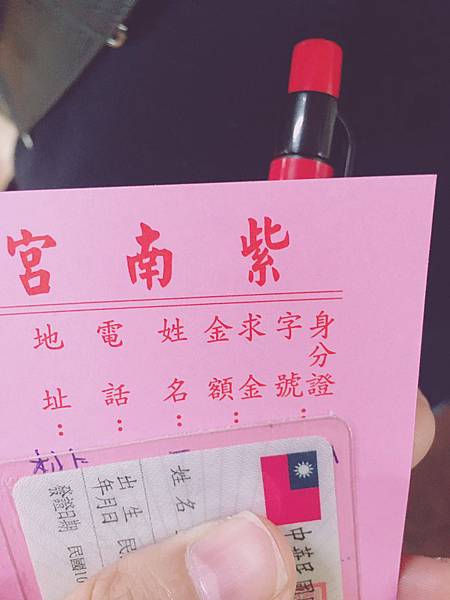 紫南宮
身分證字號：
求金金額：
姓名：
電話：
地址：
中華民國
姓名
出生年月日 民
發證日期 民國10